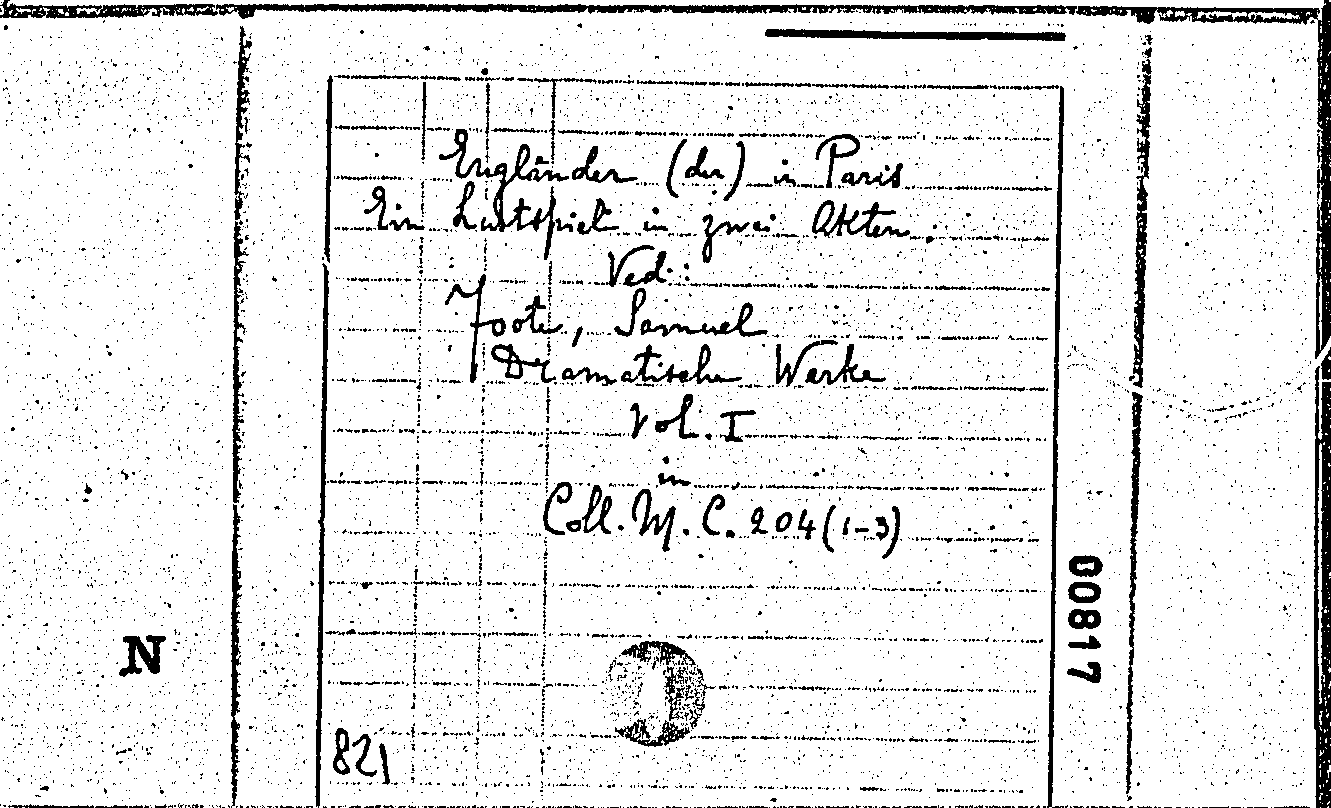 Engländer (der) in Paris
Ein Lustspiel in zwei Akten.
Ved.:
Foote, Samuel
Dramatische Werke
Vol. I
in
Coll. M. C. 204 (1-3)
00817
N
821